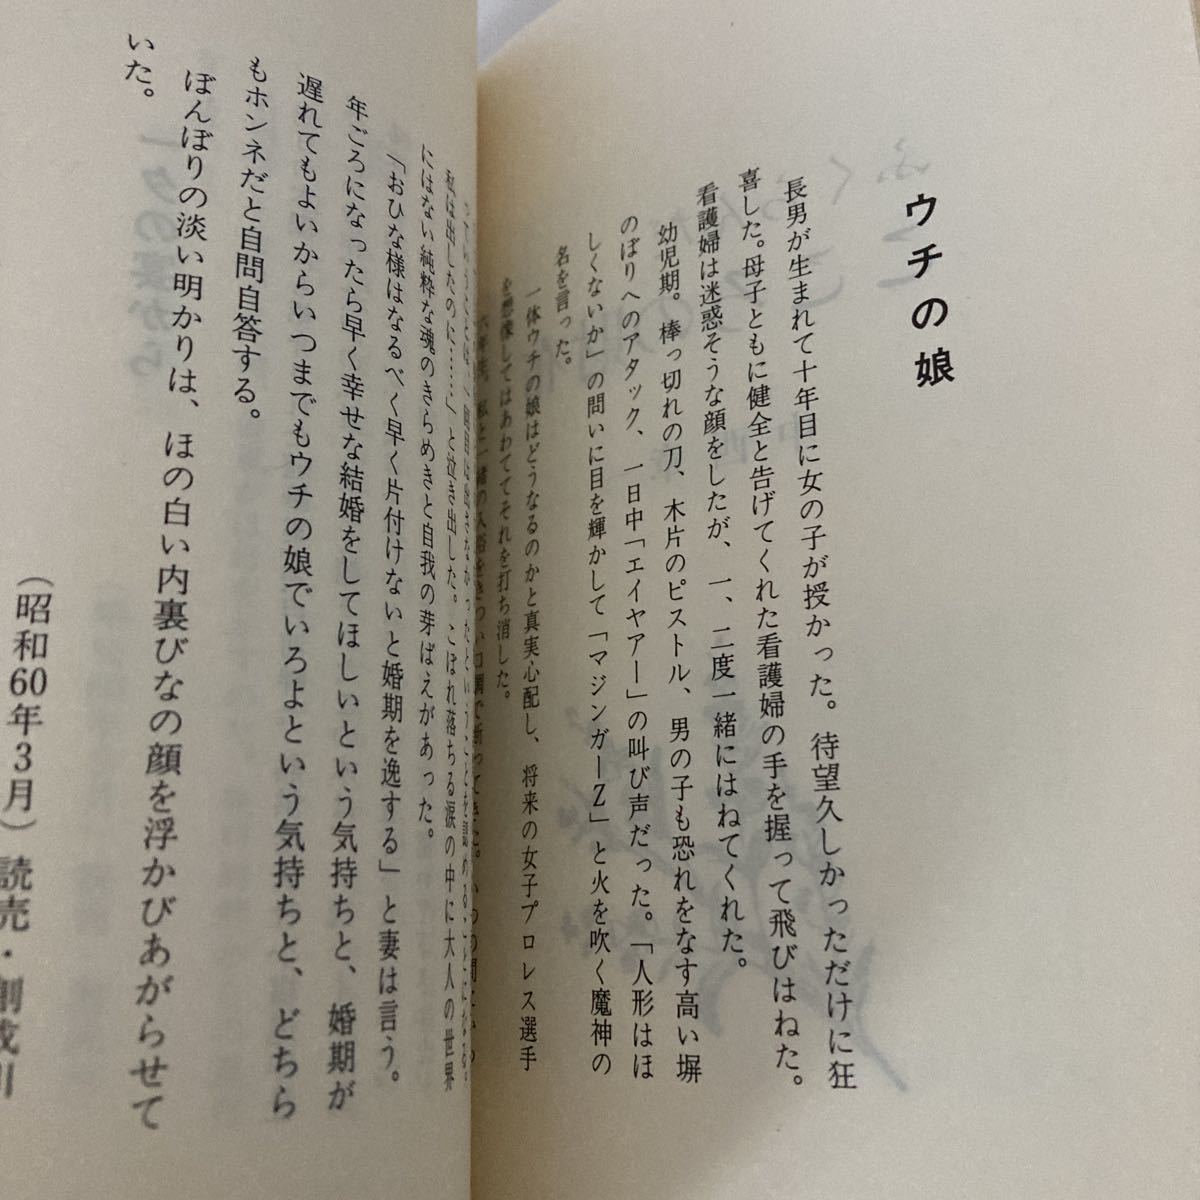 ウチの娘
長男が生まれて十年目に女の子が授かった。待望久しかっただけに狂
喜した。母子ともに健全と告げてくれた看護婦の手を握って飛びはねた。
看護婦は迷惑そうな顔をしたが、一、二度一緒にはねてくれた。
幼児期。棒っ切れの刀、木片のピストル、男の子も恐れをなす高い塀
のぼりへのアタック、一日中「エイヤアー」の叫び声だった。「人形はほ
しくないか」の問いに目を輝かして「マジンガーZ」と火を吹く魔神の
名を言った。
一体ウチの娘はどうなるのかと真実心配し、将来の女子プロレス選手
を想像してはあわててそれを打ち消した。
私と一緒の入浴をきつい口調で断ってきた。いつの間に
私は出したのに……」と泣き出した。こぼれ落ちる涙の中に大人の世界
にはない純粋な魂のきらめきと自我の芽ばえがあった。
「おひな様はなるべく早く片付けないと婚期を逸する」と妻は言う。
年ごろになったら早く幸せな結婚をしてほしいという気持ちと、婚期が
遅れてもよいからいつまでもウチの娘でいろよという気持ちと、どちら
もホンネだと自問自答する。
ぼんぼりの淡い明かりは、ほの白い内裏びなの顔を浮かびあがらせて
いた。
（昭和60年3月）読売・